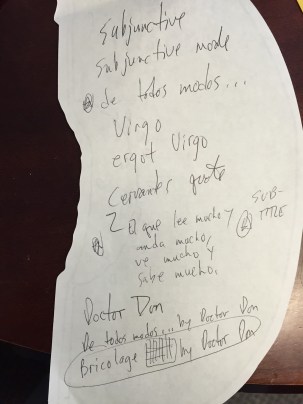 Subjunctive
Subjunctive mode
de todos modos...
Virgo
ergot Virgo
Cervantes quote
2 El que lee mucho y
anda mucho,
ve mucho y
sabe mucho.
SUB-
TITLE
Doctor Don
De todos modos... by Doctor Don
Bricolage by Doctor Don